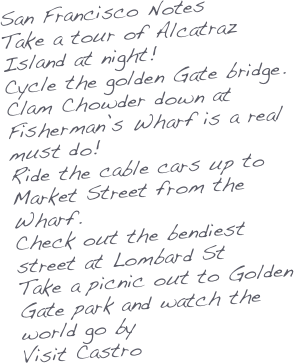 San Francisco Notes
Take a tour of Alcatraz
Island at night!
Cycle the golden Gate bridge.
Clam Chowder down at
Fisherman's Wharf is a real
must do!
Ride the cable cars up to
Market Street from the
Wharf.
Check out the bendiest
street at Lombard St
Take a picnic out to Golden
Gate park and watch the
world go by
Visit Castro